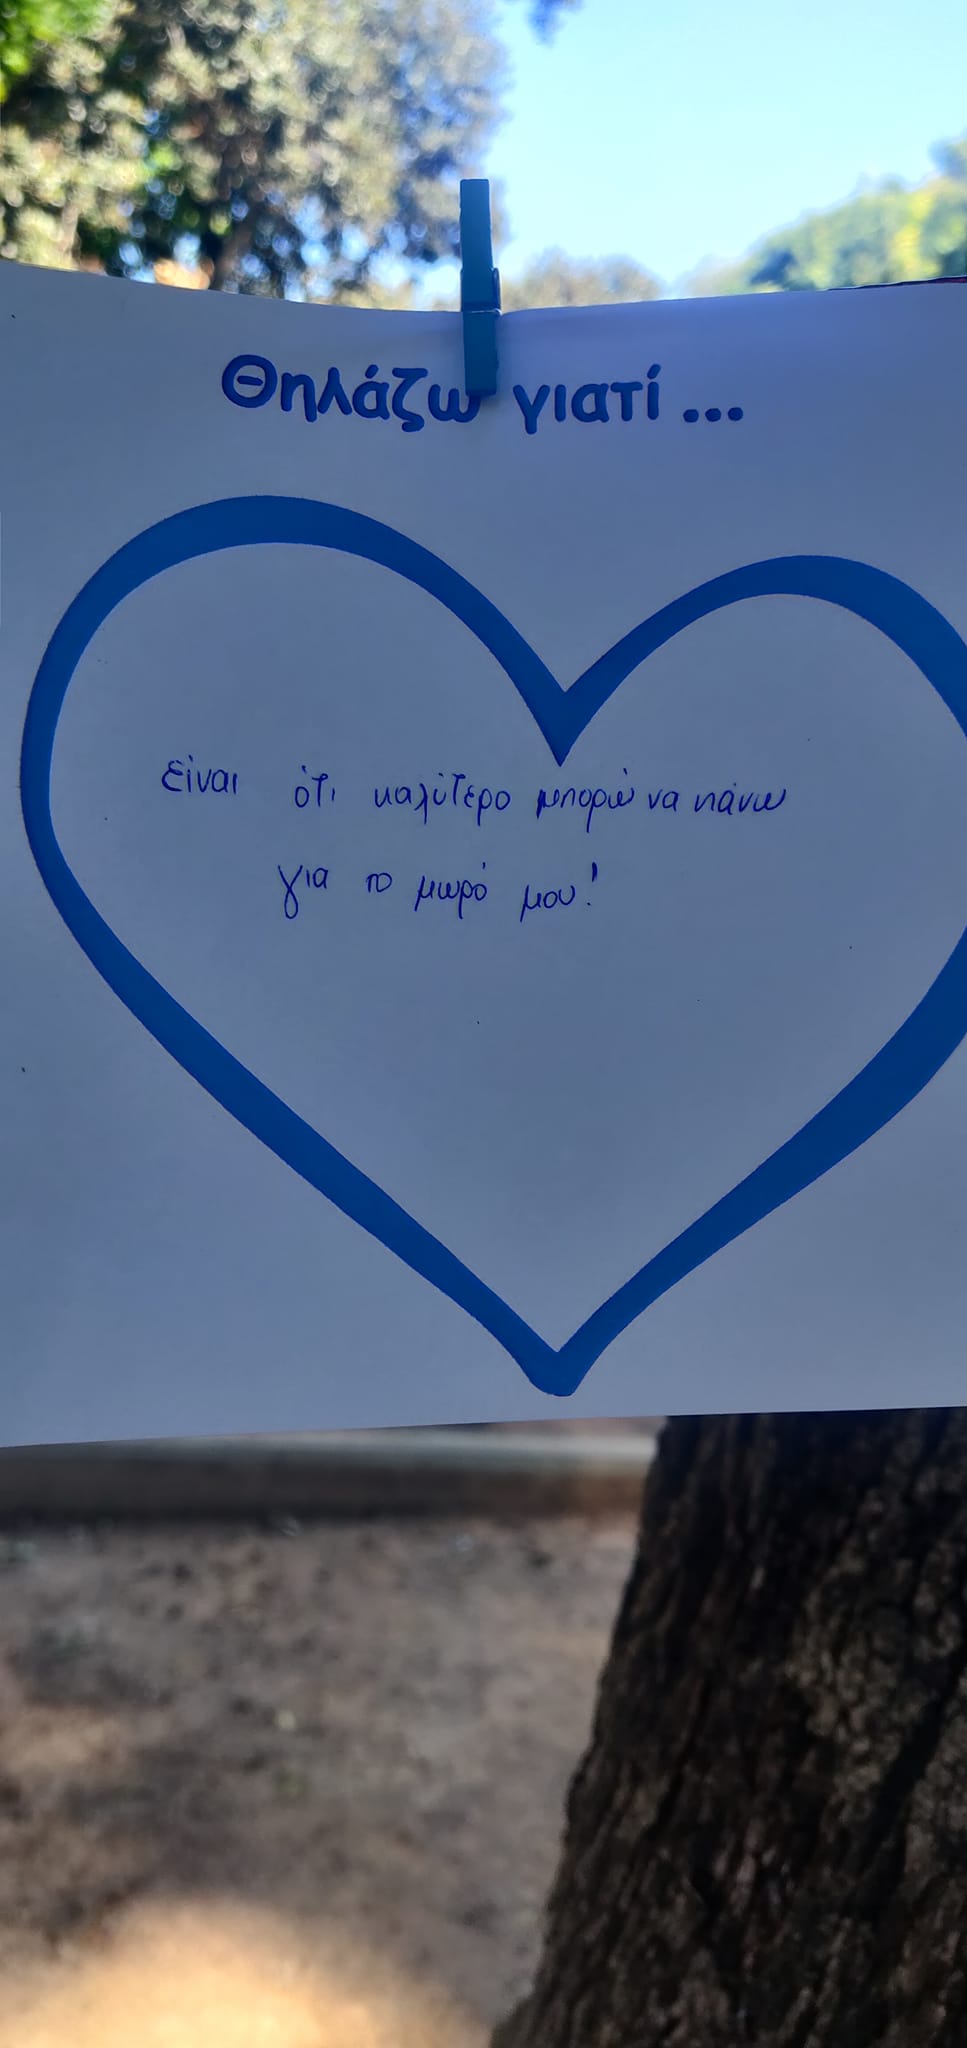 Θηλάζω γιατί ...
είναι ότι καλύτερο μπορώ να κάνω
για το μωρό μου!